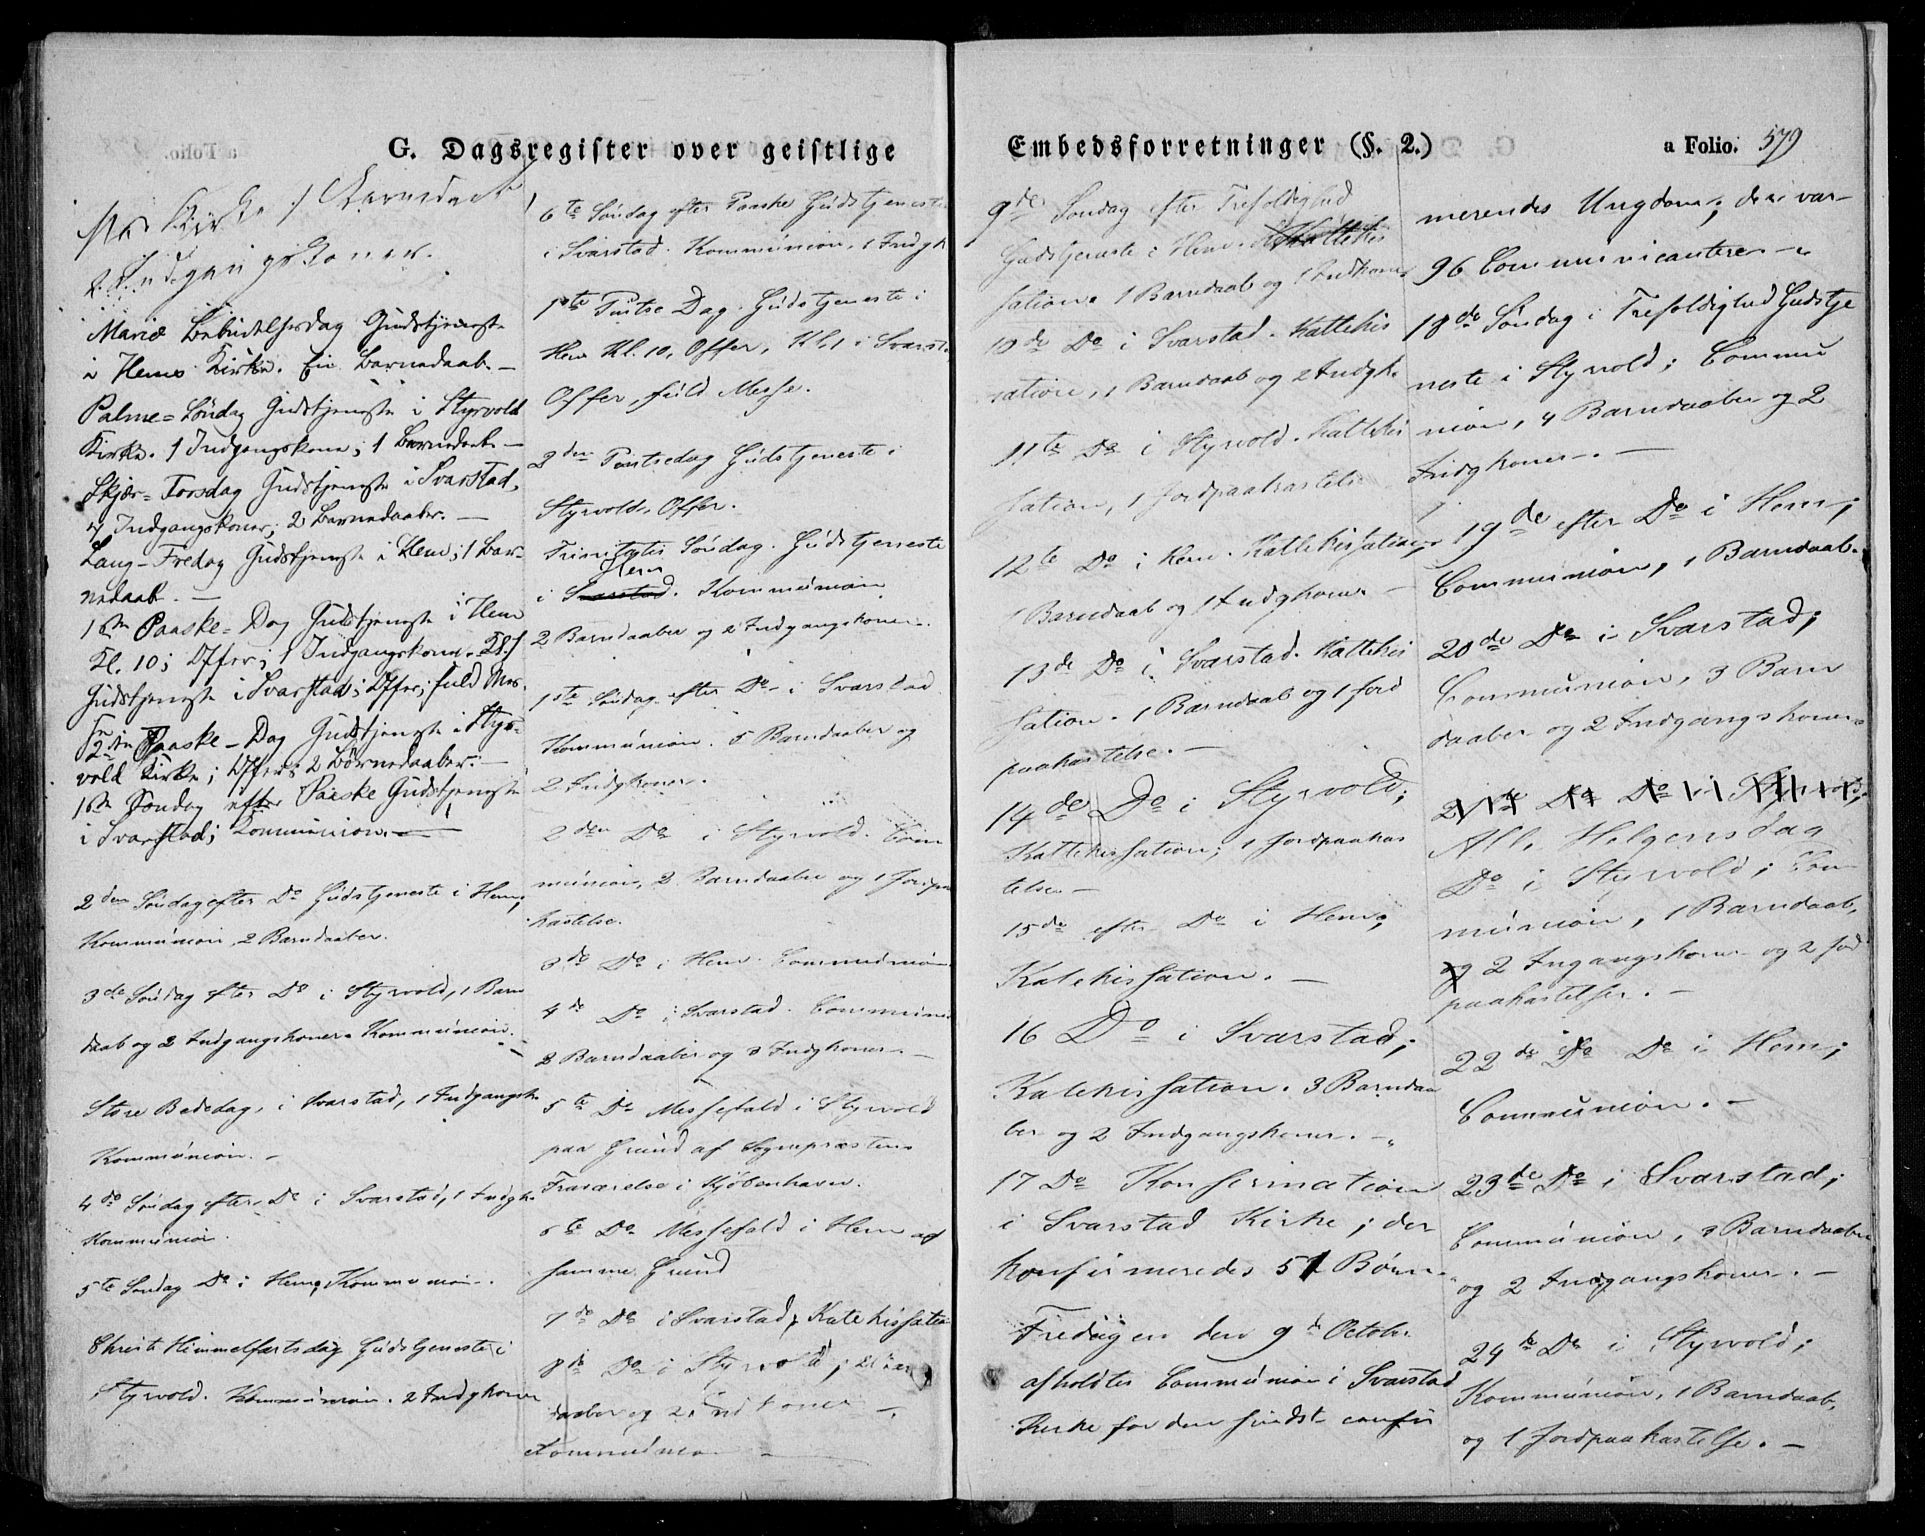 G. Dagsregister over geistlige
Kirke 1 Barnedaab
2 Indgangskoner.
Mariæ Bebudelsesdag Gudstjeneste
i Hems Kirke. En Barnedaab. —
Palme=Søndag Gudstjeneste i Styrvold
Kirke. 1 Indgangskone; 1 Barnedaab. —
Skjær=Torsdag Gudstjeneste i Svarstad,
4 Indgangskoner; 2 Barnedaaber. —
Lang-Fredag Gudstjeneste i Hem; 1 Bar-
nedaab. —
1ste Paaske=Dag Gudstjeneste i Hem
Kl. 10; Offer; 1 Indgangskone. Kl. 1
Gudstjeneste i Svarstad; Offer; fuld Mes-
se
2den Paaske-Dag Gudstjeneste i Styr-
vold Kirke; Offer; 2 Børnedaaber. —
1ste Søndag efter Paaske Gudstjeneste
i Svarstad; Kommunion. —
2den Søndag efter Do Gudstjeneste i Hem,
Kommunion, 2 Barndaaber.
3de Søndag efter Do i Styrvold, 1 Barn
daab og 2 Indgangskoner. Kommunion. —
Store Bededag, i Svarstad, 1 Indgangsk.
Kommunion. —
4de Søndag efter Do i Svarstad, 1 Indgk.
Kommunion.
5te Søndag Do i Hem, Kommunion.
Christi Himmelfartsdag Gudstjeneste i
Styrvold. Kommunion. 2 Indgkoner
6te Søndag efter Paaske Gudstjeneste
i Svarstad. Kommunion, 1 Indgk
1ste Pintse Dag. Gudstjeneste i
Hem Kl. 10, Offer, Kl. 1 i Svarst
Offer, fuld Messe.
2den Pintsedag Gudstjeneste i
Styrvold. Offer.
Trinitatis Søndag. Gudstjeneste
Hem
i Svarstad. Kommunion
2 Barndaaber og 2 Indgangskoner.
1ste Søndag efter Do i Svarstad
Kommunion. 5 Barndaaber og
2 Indgkoner.
2den Do i Styrvold. Com
munion, 2 Barndaabe og 1 Jordpaa
kastelse.
3de Do i Hem. Communion
4de Do i Svarstad. Communion
2 Barndaaber og 3 Indgkoner. —
5te Do Messefald i Styrvold
paa Grund af Sognepræstens
Fraværelse i Kjøbenhavn.
6te Do Messefald i Hem af
samme Grund
7de Do i Svarstad, Katekisatio
8de Do i Styrvold; 2 Bar
daaber og 2 Indkoner —
Kommunion —
Embedsforretninger (§. 2.)
a Folio. 579
9de Søndag efter Trefoldighed
Gudstjeneste i Hem. Kattekis
sation. 1 Barndaab og 1 Indkone
10de Do i Svarstad. Kattekis
sation, 1 Barndaab og 2 Indgk.
11te Do i Styrvold. Kattekis
sation, 1 Jordpaakastelse
12te Do i Hem. Kattekissation,
1 Barndaab og 1 Indgkone —
13de Do i Svarstad. Kattekis
sation. 1 Barndaab og 1 Jord
paakastelse. —
14de Do i Styrvold;
Kattekissation; 1 Jordpaakas
telse —
15de efter Do i Hem;
Katekissation. —
16 Do i Svarstad;
Katekissation. 3 Barndaa
ber og 2 Indgangskoner. —
17 Do Konfirmation
i Svarstad Kirke; der
konfirmeredes 51 Børn.
Fredagen den 9de October
afholdtes Communion i Svarstad
Kirke for den sindst confir
merendes Ungdom; der var
96 Communicantere —
18de Søndag i Trefoldighed Gudstje
neste i Styrvold; Commu
nion, 4 Barndaaber og 2
Indgkoner. —
19de efter Do i Hem;
Communion, 1 Barndaab.
20de Do i Svarstad;
Communion, 3 Barn
daaber og 2 Indgangskoner.
21de Do Do i Styrvold;
Alle Helgensdag
Do i Styrvold; Com
munion, 1 Barndaab,
og 2 Ingangskoner og 2 Jord
paakastelser. —
22de Do Do i Hem;
Communion. —
23de Do i Svarstad;
Communion, 3 Barndaaber
og 2 Indgangskoner. —
24de Do i Styrvold;
Kommunion, 1 Barndaab,
og 1 Jordpaakastelse. —